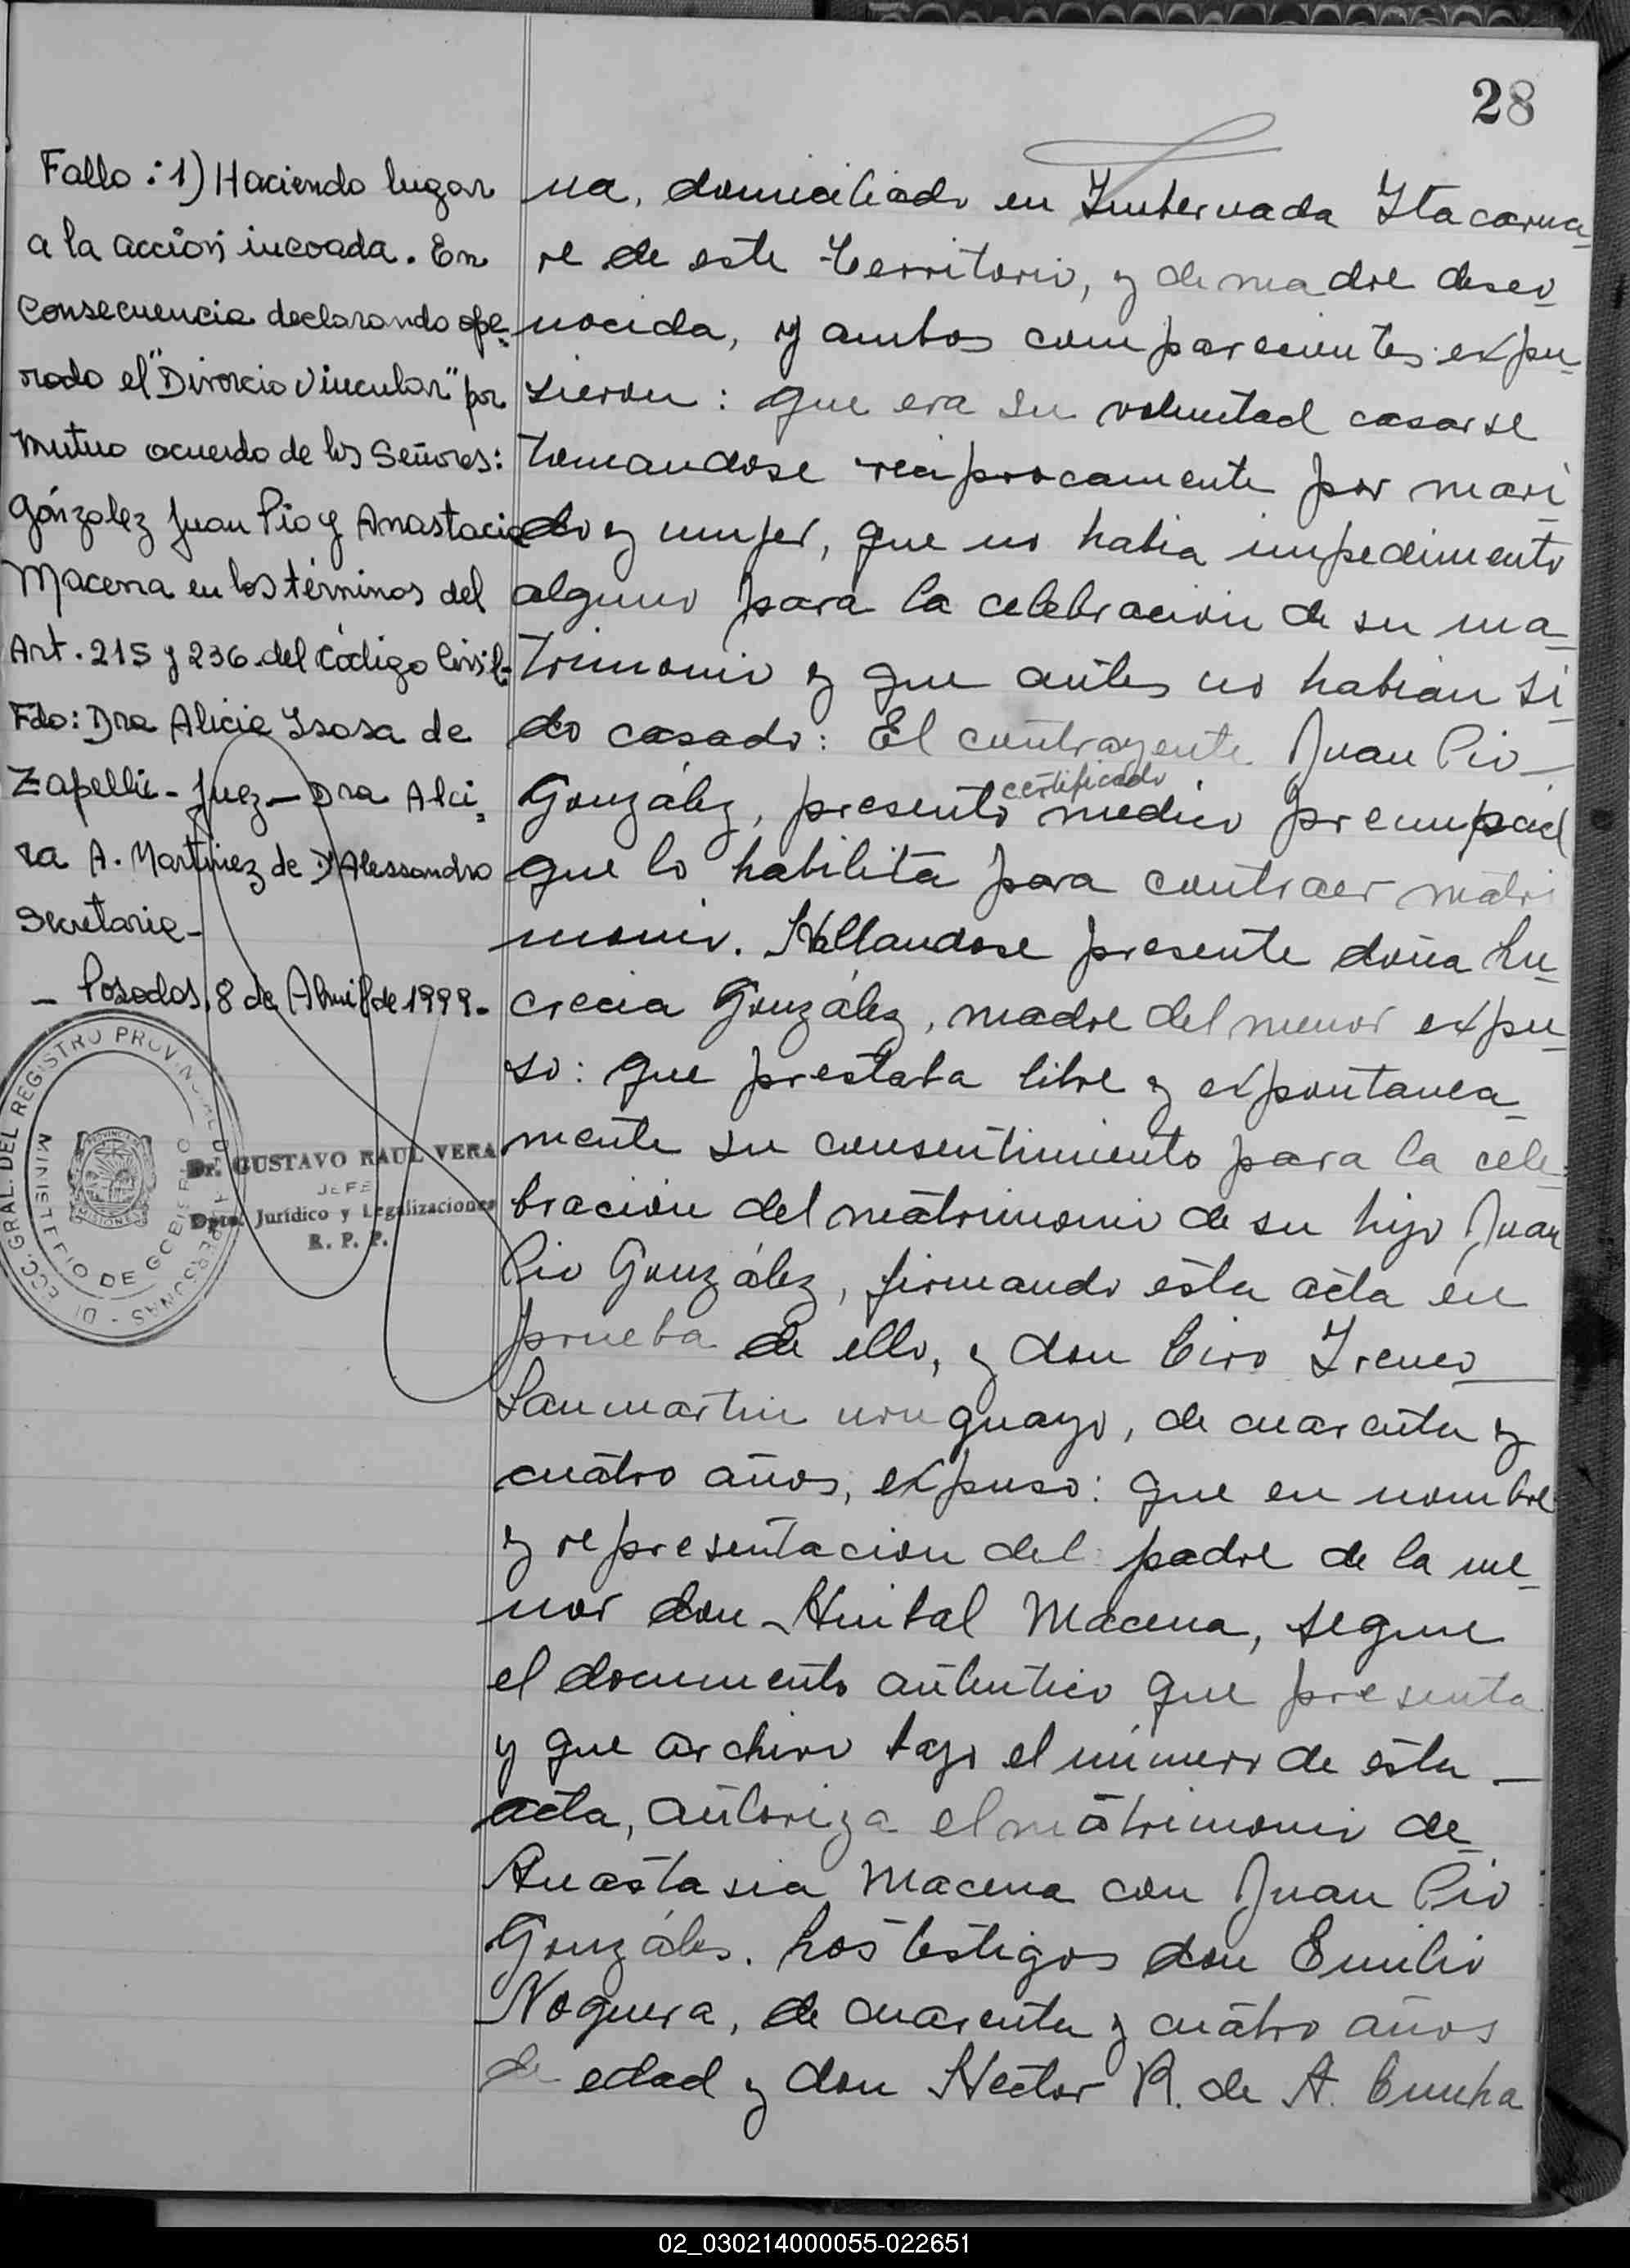 28
Fallo: 1) Haciendo lugar
a la acción incoada. En
consecuencia declarando ope=
rado el "Divorcio Vincular" por
Mutuo acuerdo de los Señores:
Gónzalez Juan Pío y Anastacia
Macena en los términos del
Art. 215 y 236 del Código Civil-
Fdo: Dra Alicia Isasa de
Zapelli - Juez - Dra Alci=
ra A. Martinez de D'Alessandro
Secretaria -
- Posadas, 8 de Abril de 1999.
DIRECC. GRAL. DEL REGISTRO PROVINCIAL DE LAS PERSONAS
MINISTERIO DE GOBIERNO
PROVINCIA DE
MISIONES
Dr. GUSTAVO RAUL VERA
JEFE
Dpto. Jurídico y Legalizaciones
R. P. P.
na, domiciliado en Itacarua-
re de este Territorio, y de madre desco-
nocida, y ambos comparecientes expu-
sieron: que era su voluntad casarse
tomandose reciprocamente por mari-
do y mujer, que no habia impedimento
alguno para la celebracion de su ma-
trimonio y que antes no habian si-
do casado: El contrayente Juan Pio -
certificado
González, presento medico prenupcial
que lo habilita para contraer matri
monio. Hallandose presente doña Lu-
crecia González, madre del menor expu-
so: que prestaba libre y expontanea-
mente su consentimiento para la cele-
bracion del matrimonio de su hijo Juan
Pio González, firmando esta acta en
prueba de ello, y don Ciro Ireneo
Sanmartin uruguayo, de cuarenta y
cuatro años, expuso: que en nombre
y representacion del padre de la me-
nor don Anibal Macena, segun
el documento autentico que presenta
y que archivo bajo el número de esta -
acta, autoriza el matrimonio de
Anastasia Macena con Juan Pio
Gonzáles. Los testigos don Emilio
Noguera, de cuarenta y cuatro años
de edad y don Hector R. de A. Cunha
02_030214000055-022651